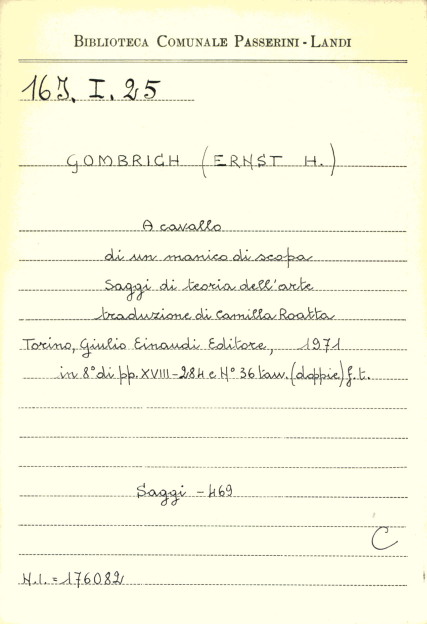 BIBLIOTECA COMUNALE PASSERINI - LANDI
16J. I. 25
GOMBRICH (ERNST H.)
A cavallo
di un manico di scopa
Saggi di teoria dell'arte
traduzione di Camilla Roatta
Torino, Giulio Einaudi Editore, 1971
in 8° di pp. XVIII-284 e N° 36 tav. (doppie) f.t.
Saggi - 469
C
N.I. = 176082